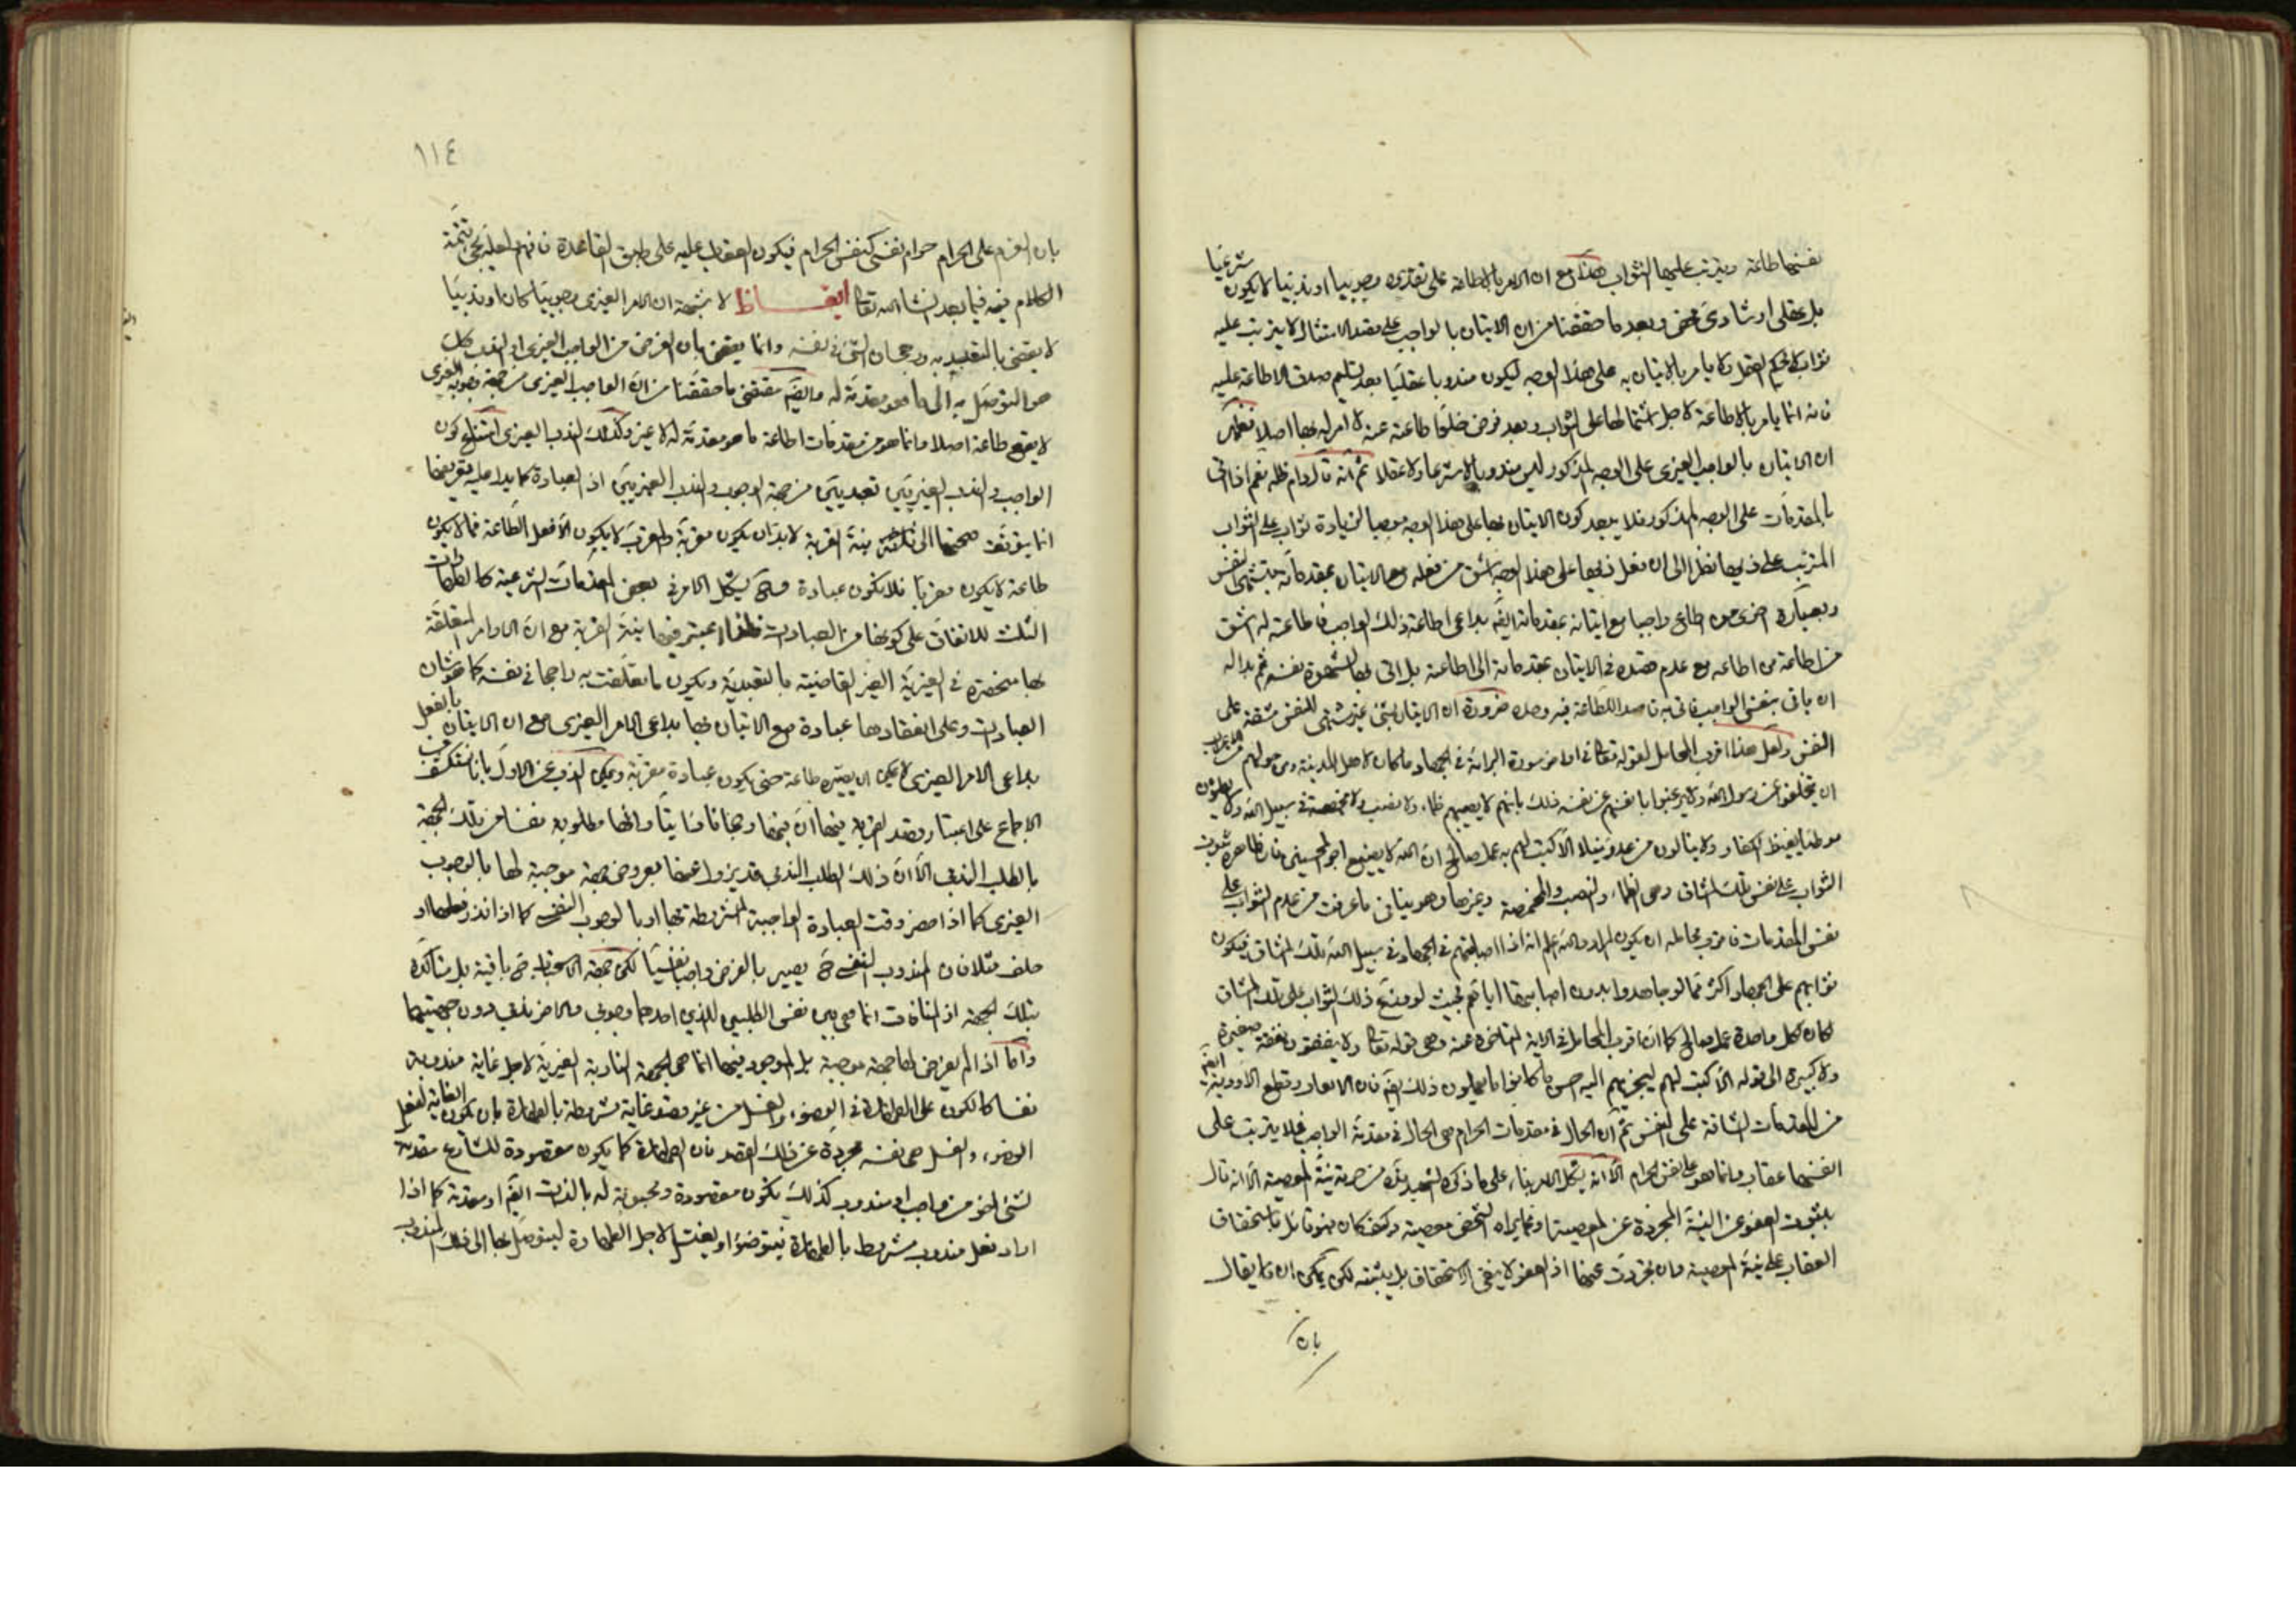 نفسها طاعة ويترتب عليها الثواب هذا مع ان الامر بالاطاعة على تقديره وجوبيا او ندبيا لا يكون شرعيا
بل عقلى ارشادى محض وبعد ما حققنا من ان الاتيان بالواجب على قصد الامتثال لا يترتب عليه
ثواب لا يحكم العقل ولا يامر بالاتيان به على هذا الوجه ليكون مندوبا عقليا بعد تسليم صدق الاطاعة عليه
فانه انما يامر بالاطاعة لاجل اشتمالها على الثواب وبعد فرض خلو اطاعة عنه لا امر له بها اصلا فظهر
ان الاتيان بالواجب الغيرى على الوجه المذكور ليس مندوبا لا شرعا ولا عقلا ثم انه قال دام ظله نعم اذا اتى
بالمقدمات على الوجه المذكور فلا يبعد كون الاتيان بها على هذا الوجه موجبا لزيادة ثواب على الثواب
المترتب على ذيها نظرا الى ان فعل ذيها على هذا الوجه اشق من فعله مع الاتيان بمقدماته بتشهى النفس
وبعبارة اخرى من اطاع واجبا مع اتيانه بمقدماته ايضا بداعى اطاعة ذلك الواجب فاطاعته له اشق
من اطاعة من اطاعه مع عدم قصده فى الاتيان بمقدماته الى اطاعته بل اتى بها لشهوة نفسه ثم بدا له
ان ياتى بنفس الواجب فاتى به قاصدا للطاعة فيه وحده ضرورة ان الاتيان بشئ غير مشتهى للنفس مشقة على
النفس ولعل هذا اقرب المحامل لقوله تعالى فى اواخر سورة البرائة فى الجهاد ما كان لاهل المدينة ومن حولهم من الاعراب
ان يتخلفوا عن رسول الله ولا يرغبوا بانفسهم عن نفسه ذلك بانهم لا يصيبهم ظماء ولا نصب ولا مخمصة فى سبيل الله ولا يطؤن
موطئا يغيظ الكفار ولا ينالون من عدو نيلا الا كتب لهم به عمل صالح ان الله لا يضيع اجر المحسنين فان ظاهره ثبوت
الثواب على نفس تلك المشاق وهى الظماء والنصب والمخمصة وغيرها وهو ينافى ما عرفت من عدم الثواب على
نفس المقدمات فاقرب محامله ان يكون المراد والله اعلم انه اذا اصابتهم فى الجهاد فى سبيل الله تلك المشاق فيكون
ثوابهم على الجهاد اكثر مما لو جاهدوا بدون اصابتها اياهم بحيث لو وزع ذلك الثواب على تلك المشاق
لكان لكل واحدة عمل صالح كما ان اقرب المحامل فى الاية المتاخرة عنه وهى قوله تعالى ولا ينفقون نفقة صغيرة
ولا كبيرة الى قوله الا كتب لهم ليجزيهم الله احسن ما كانوا يعملون ذلك ايضا فان الانفاق وقطع الاودية ايضا
من المقدمات الشاقة على النفس ثم ان الحال فى مقدمات الحرام هى الحال فى مقدمة الواجب فلا يترتب على
انفسها عقاب وانما هو على نفس الحرام الا انه يشكل الامر بناء على ما ذكره الشهيد من حرمة نية المعصية الا انه قال
بثبوت العفو عن النية المجردة عن المعصية او عما يراه الشخص معصية وكيف كان فهو قائل باستحقاق
العقاب على نية المعصية وان تجردت عنها اذ العفو لا ينفى الاستحقاق بل يثبته لكن يمكن ان يقال
بان
١١٤
بان العزم على الحرام حرام نفسى كنفس الحرام فيكون العقاب عليه على طبق القاعدة فافهم لعله يجئ تتمة
الكلام فيه فيما بعد انشاء الله تعالى ايقاظ لا شبهة ان الامر الغيرى وجوبيا كان او ندبيا
لا يقتضى بالتعبد به ورجحان الشئ فى نفسه وانما يقتضى بان الغرض من الواجب الغيرى او المندوب كك
هو التوصل به الى ما هو مقدمة له وايضا مقتضى ما حققنا من ان الواجب الغيرى من جهة وجوبه الغيرى
لا يقع طاعة اصلا وانما هو من مقدمات اطاعة ما هو مقدمة له لا غير وكذلك المندوب الغيرى امتناع كون
الواجب والمندوب الغيريين تعبديين من جهة الوجوب والندب الغيريين اذ العبادة كما يدل عليه تعريفها
انما يتوقف صحتها الى نية القربة لا بد ان يكون مقربة والمقرب لا يكون الا فعل الطاعة فما لا يكون
طاعة لا يكون مقربا فلا يكون عبادة فح يشكل الامر فى بعض المقدمات الشرعية كالطهارات
الثلث للاتفاق على كونها من العبادات فلذا يعتبر فيها نية القربة مع ان الاوامر المتعلقة
بها منحصرة فى الغيرية الغير القاضية بالتعبدية وبكون ما تعلقت به راجحا فى نفسه كما هو شان
العبادات وعلى انعقادها عبادة مع الاتيان بها بداعى الامر الغيرى مع ان الاتيان بالفعل
بداعى الامر الغيرى لا يمكن ان يصيره طاعة حتى يكون عبادة مقربة ويمكن الذب عن الاول بانا نستكشف من
الاجماع على اعتبار قصد القربة فيها ان فيها رجحانا ذاتيا وانها مطلوبة نفسا من تلك الجهة
بالطلب الندبى الا ان ذلك الطلب الندبى قد يزول عنها بعروض جهة موجبة لها بالوجوب
الغيرى كما اذا حضر وقت العبادة الواجبة المشروطة بها او بالوجوب النفسى كما اذا نذر فعلها او
حلف مثلا فان المندوب النفسى ح يصير بالعرض واجبا نفسيا لكن جهة الاستحباب ح باقية بل متاكدة
بتلك الجهة اذ المنافات انما هى بين نفس الطلبين الذين احدهما وجوبى والاخر ندبى دون جهتيهما
واما اذا لم يعرض لها جهة موجبة بل الموجود فيها انما هى الجهة النادبة الغيرية لاجل غاية مندوبة
نفسا كالكون على الطهارة فى الوضوء والغسل من غير قصد غاية مشروطة بالطهارة بان يكون الغاية لفعل
الوضوء والغسل هى نفسه مجردة عن ذلك القصد فان الطهارة كما يكون مقصودة للشارع مقدمة
لشئ اخر من واجب او مندوب كذلك تكون مقصودة ومحبوبة له بالذات ايضا او مقدمة كما اذا
اراد فعل مندوب مشروط بالطهارة فيتوضؤ او يغتسل لاجل الطهارة ليتوصل بها الى ذلك المندوب